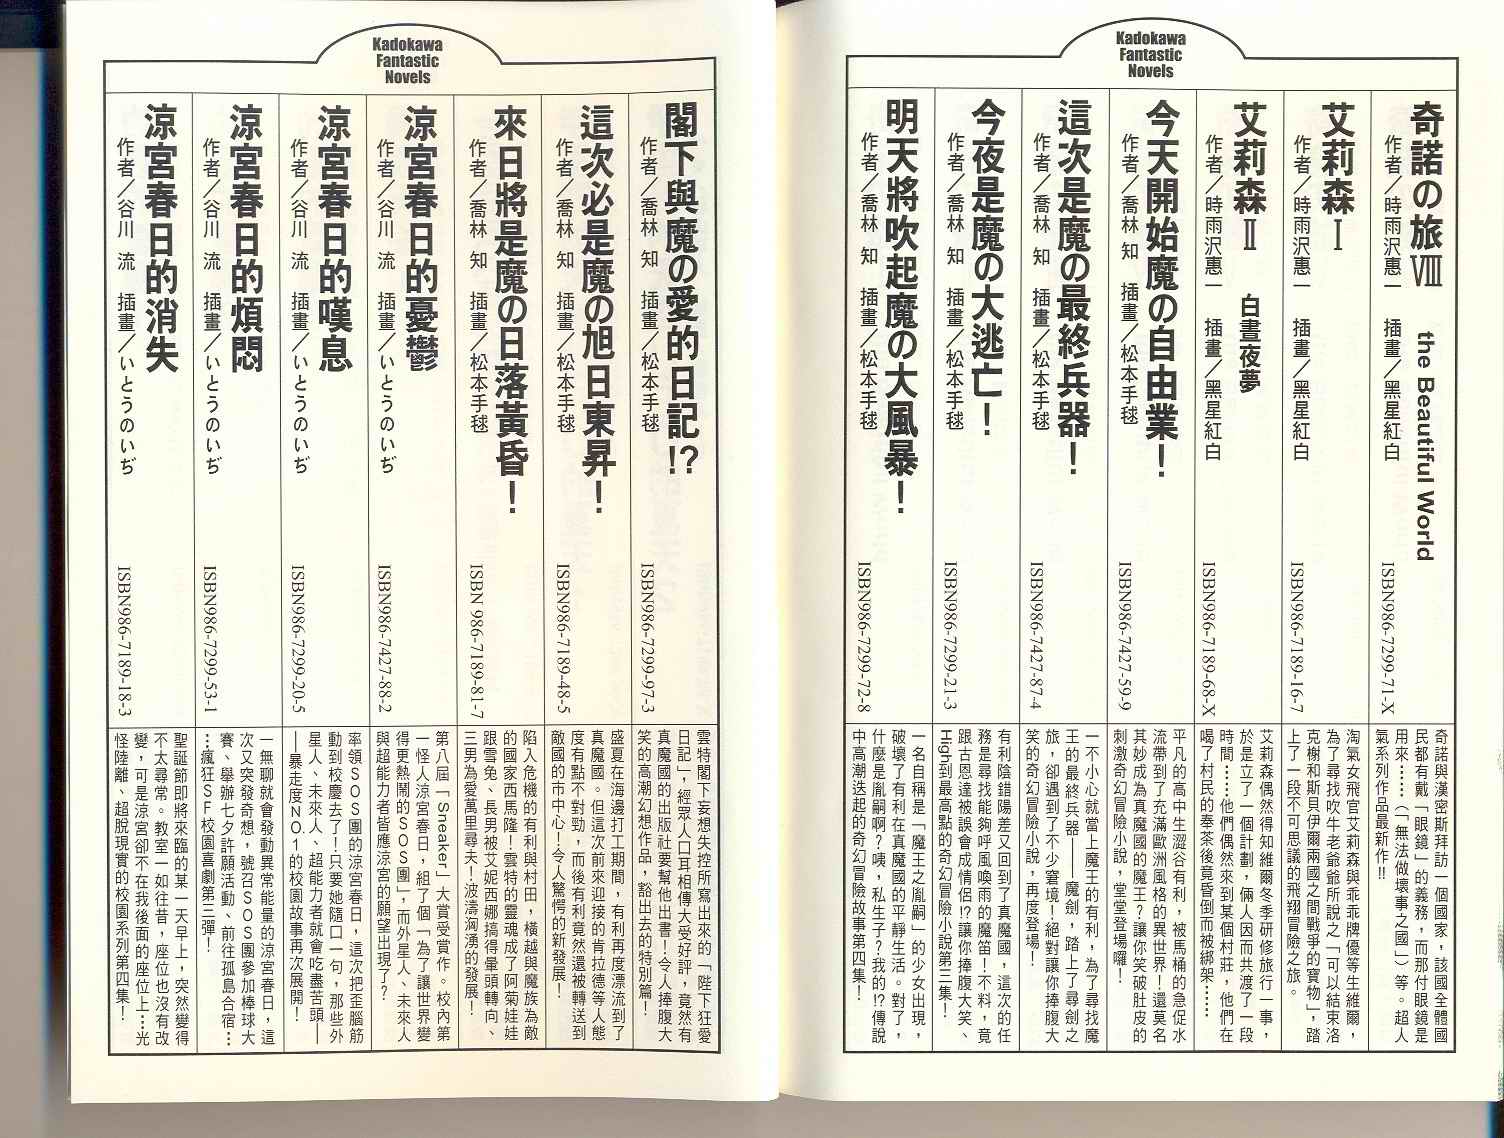 Kadokawa
Fantastic
Novels
奇諾の旅Ⅷ the Beautiful World
作者／時雨沢惠一 插畫／黑星紅白
ISBN986-7299-71-X
奇諾與漢密斯拜訪一個國家，該國全體國
民都有戴「眼鏡」的義務，而那付眼鏡是
用來……（「無法做壞事之國」）等。超人
氣系列作品最新作!!
艾莉森Ⅰ
作者／時雨沢惠一 插畫／黑星紅白
ISBN986-7189-16-7
淘氣女飛官艾莉森與乖乖牌優等生維爾，
為了尋找吹牛老爺爺所說之「可以結束洛
克榭和斯貝伊爾兩國之間戰爭的寶物」，踏
上了一段不可思議的飛翔冒險之旅。
艾莉森Ⅱ 白晝夜夢
作者／時雨沢惠一 插畫／黑星紅白
ISBN986-7189-68-X
艾莉森偶然得知維爾冬季研修旅行一事，
於是立了一個計劃，倆人因而共渡了一段
時間……他們偶然來到某個村莊，他們在
喝了村民的奉茶後竟昏倒而被綁架……
今天開始魔の自由業！
作者／喬林 知 插畫／松本手毬
ISBN986-7427-59-9
平凡的高中生澀谷有利，被馬桶的急促水
流帶到了充滿歐洲風格的異世界！還莫名
其妙成為真魔國的魔王？讓你笑破肚皮的
刺激奇幻冒險小說，堂堂登場囉！
這次是魔の最終兵器！
作者／喬林 知 插畫／松本手毬
ISBN986-7427-87-4
一不小心就當上魔王的有利，為了尋找魔
王的最終兵器——魔劍，踏上了尋劍之
旅，卻遇到了不少窘境！絕對讓你捧腹大
笑的奇幻冒險小說，再度登場！
今夜是魔の大逃亡！
作者／喬林 知 插畫／松本手毬
ISBN986-7299-21-3
有利陰錯陽差又回到了真魔國，這次的任
務是尋找能夠呼風喚雨的魔笛！不料，竟
跟古恩達被誤會成情侶!?讓你捧腹大笑、
High到最高點的奇幻冒險小說第三集！
明天將吹起魔の大風暴！
作者／喬林 知 插畫／松本手毬
ISBN986-7299-72-8
一名自稱是「魔王之胤嗣」的少女出現，
破壞了有利在真魔國的平靜生活。對了，
什麼是胤嗣啊？咦，私生子？我的!?傳說
中高潮迭起的奇幻冒險故事第四集！
Kadokawa
Fantastic
Novels
閣下與魔の愛的日記!?
作者／喬林 知 插畫／松本手毬
ISBN986-7299-97-3
雲特閣下妄想失控所寫出來的「陛下狂愛
日記」，經眾人口耳相傳大受好評，竟然有
真魔國的出版社要幫他出書！令人捧腹大
笑的高潮幻想作品，豁出去的特別篇！
這次必是魔の旭日東昇！
作者／喬林 知 插畫／松本手毬
ISBN986-7189-48-5
盛夏在海邊打工期間，有利再度漂流到了
真魔國。但這次前來迎接的肯拉德等人態
度有點不對勁，而後有利竟然還被轉送到
敵國的市中心！令人驚愕的新發展！
來日將是魔の日落黃昏！
作者／喬林 知 插畫／松本手毬
ISBN 986-7189-81-7
陷入危機的有利與村田，橫越與魔族為敵
的國家西馬隆！雲特的靈魂成了阿菊娃娃
跟雪兔、長男被艾妮西娜搞得暈頭轉向、
三男為愛萬里尋夫！波濤洶湧的發展！
涼宮春日的憂鬱
作者／谷川 流 插畫／いとうのいぢ
ISBN986-7427-88-2
第八屆「Sneaker」大賞受賞作。校內第
一怪人涼宮春日，組了個「為了讓世界變
得更熱鬧的SOS團」，而外星人、未來人
與超能力者皆應涼宮的願望出現了？
涼宮春日的嘆息
作者／谷川 流 插畫／いとうのいぢ
ISBN986-7299-20-5
率領SOS團的涼宮春日，這次把歪腦筋
動到校慶去了！只要她隨口一句，那些外
星人、未來人、超能力者就會吃盡苦頭—
—暴走度NO.1的校園故事再次展開！
涼宮春日的煩悶
作者／谷川 流 插畫／いとうのいぢ
ISBN986-7299-53-1
一無聊就會發動異常能量的涼宮春日，這
次又突發奇想，號召SOS團參加棒球大
賽、舉辦七夕許願活動、前往孤島合宿…
…瘋狂SF校園喜劇第三彈！
涼宮春日的消失
作者／谷川 流 插畫／いとうのいぢ
ISBN986-7189-18-3
聖誕節即將來臨的某一天早上，突然變得
不太尋常。教室一如往昔，座位也沒有改
變，可是涼宮卻不在我後面的座位上…光
怪陸離、超脫現實的校園系列第四集！